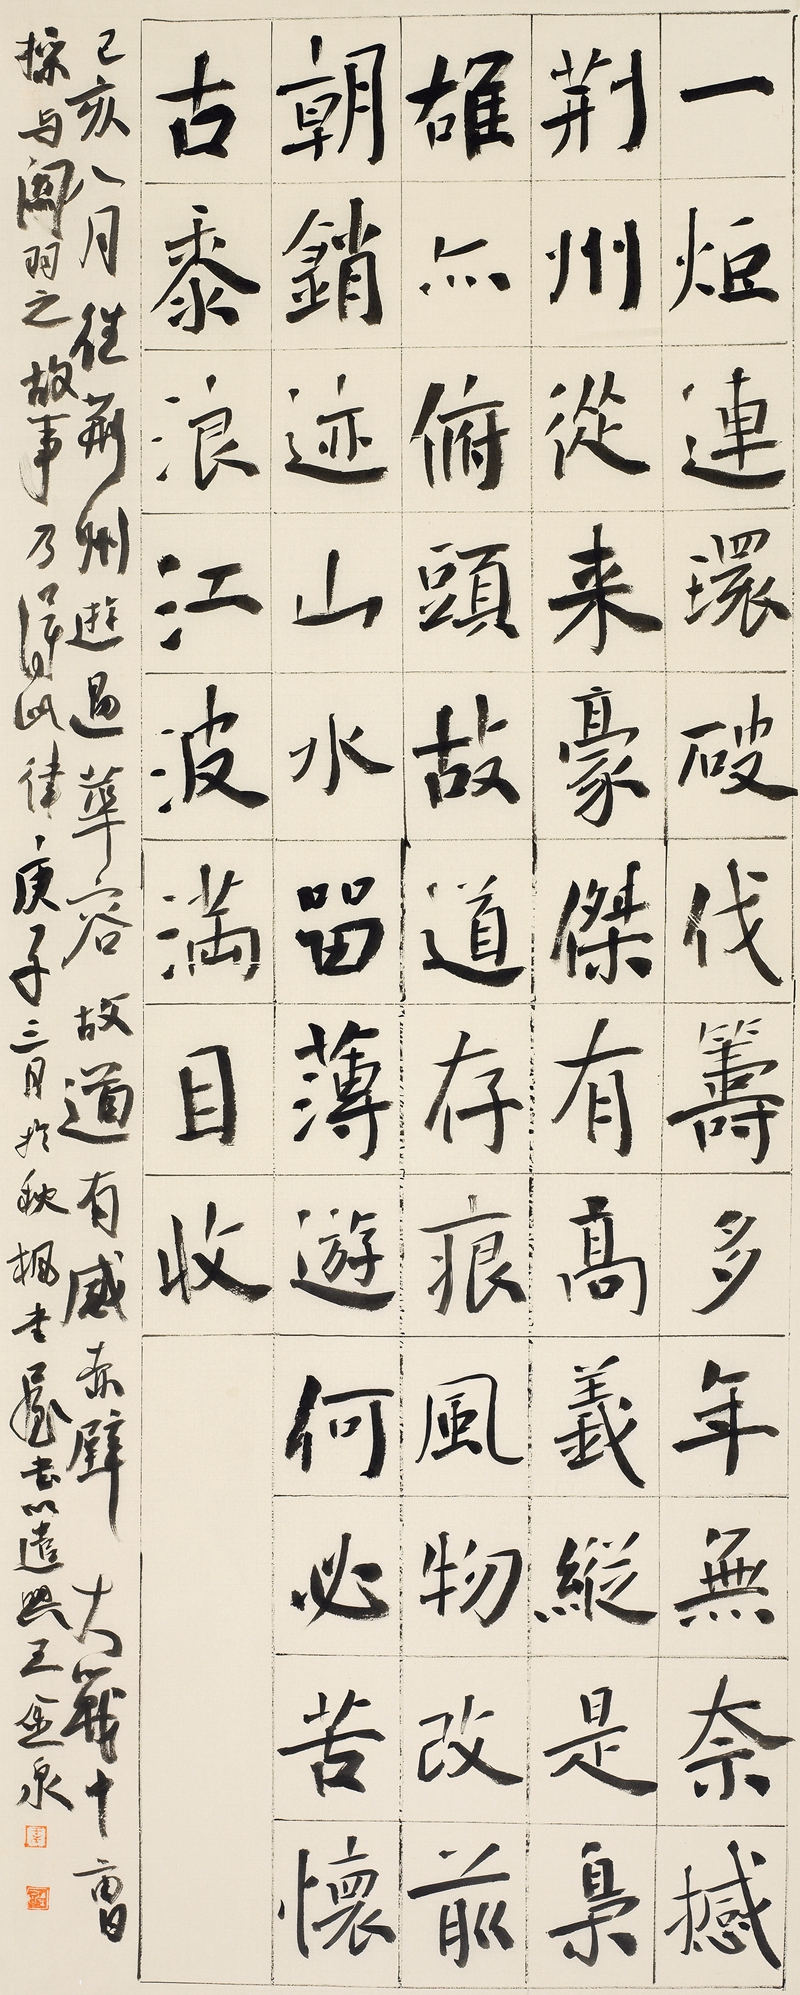 一炬連環破伐籌多年無奈撼
荆州從来豪傑有高義縱是梟
雄亦俯頭故道存痕風物改前
朝銷迹山水留薄遊何必苦懷
古黍浪江波滿目收
己亥八月往荊州遊過華容故道有感赤壁大戰十曹
操与關羽之故事乃得此律庚子三月於秋楓書屋書以遣興王金泉